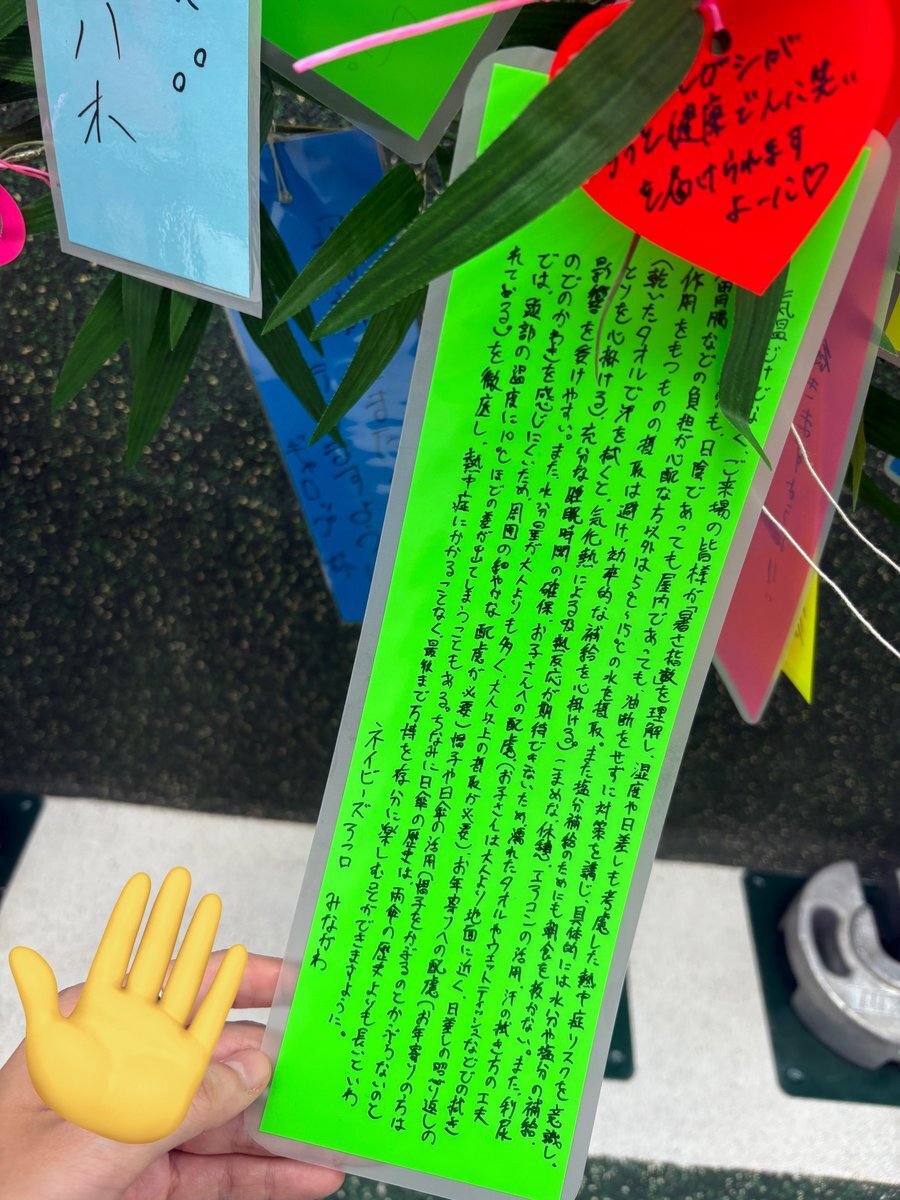 八木
ガシが
健康でんに笑い
を届けられます
よーに♡
気温だけでなく、ご来場の皆様が「暑さ指数」を理解し、湿度や日差しも考慮した熱中症リスクを意識し、
も、日陰であっても屋内であっても、油断をせずに対策を講じ、具体的には水分や塩分の補給、
胃腸などの負担が心配な方以外は5℃~15℃の水を摂取。また塩分補給のためにも朝食を抜かない。また、利尿
作用をもつものの摂取は避け、効率的な補給を心掛ける)こまめな休憩、エアコンの活用、汗の拭き方の工夫
(乾いたタオルで汗を拭くと、気化熱による吸熱反応が期待できないため濡れたタオルやウェットティッシュなどでの拭き
とりを心掛ける)、充分な睡眠時間の確保、お子さんへの配慮(お子さんは大人より地面に近く、日差しの照り返しの
影響を受けやすい。また、水分の量が大人よりも多く、大人以上の摂取が必要)お年寄りへの配慮(お年寄りの方は
のどのかわきを感じにくいため、周囲の細やかな配慮が必要)帽子や日傘の活用(帽子をかぶるのとかぶらないのと
では、頭部の温度に10℃ほどの差が出てしまうこともある。ちなみに日傘の歴史は、雨傘の歴史よりも長いといわ
れている)を徹底し、熱中症にかかることなく最後まで万博を存分に楽しむことができますように。
ネイビーズアフロ みながわ